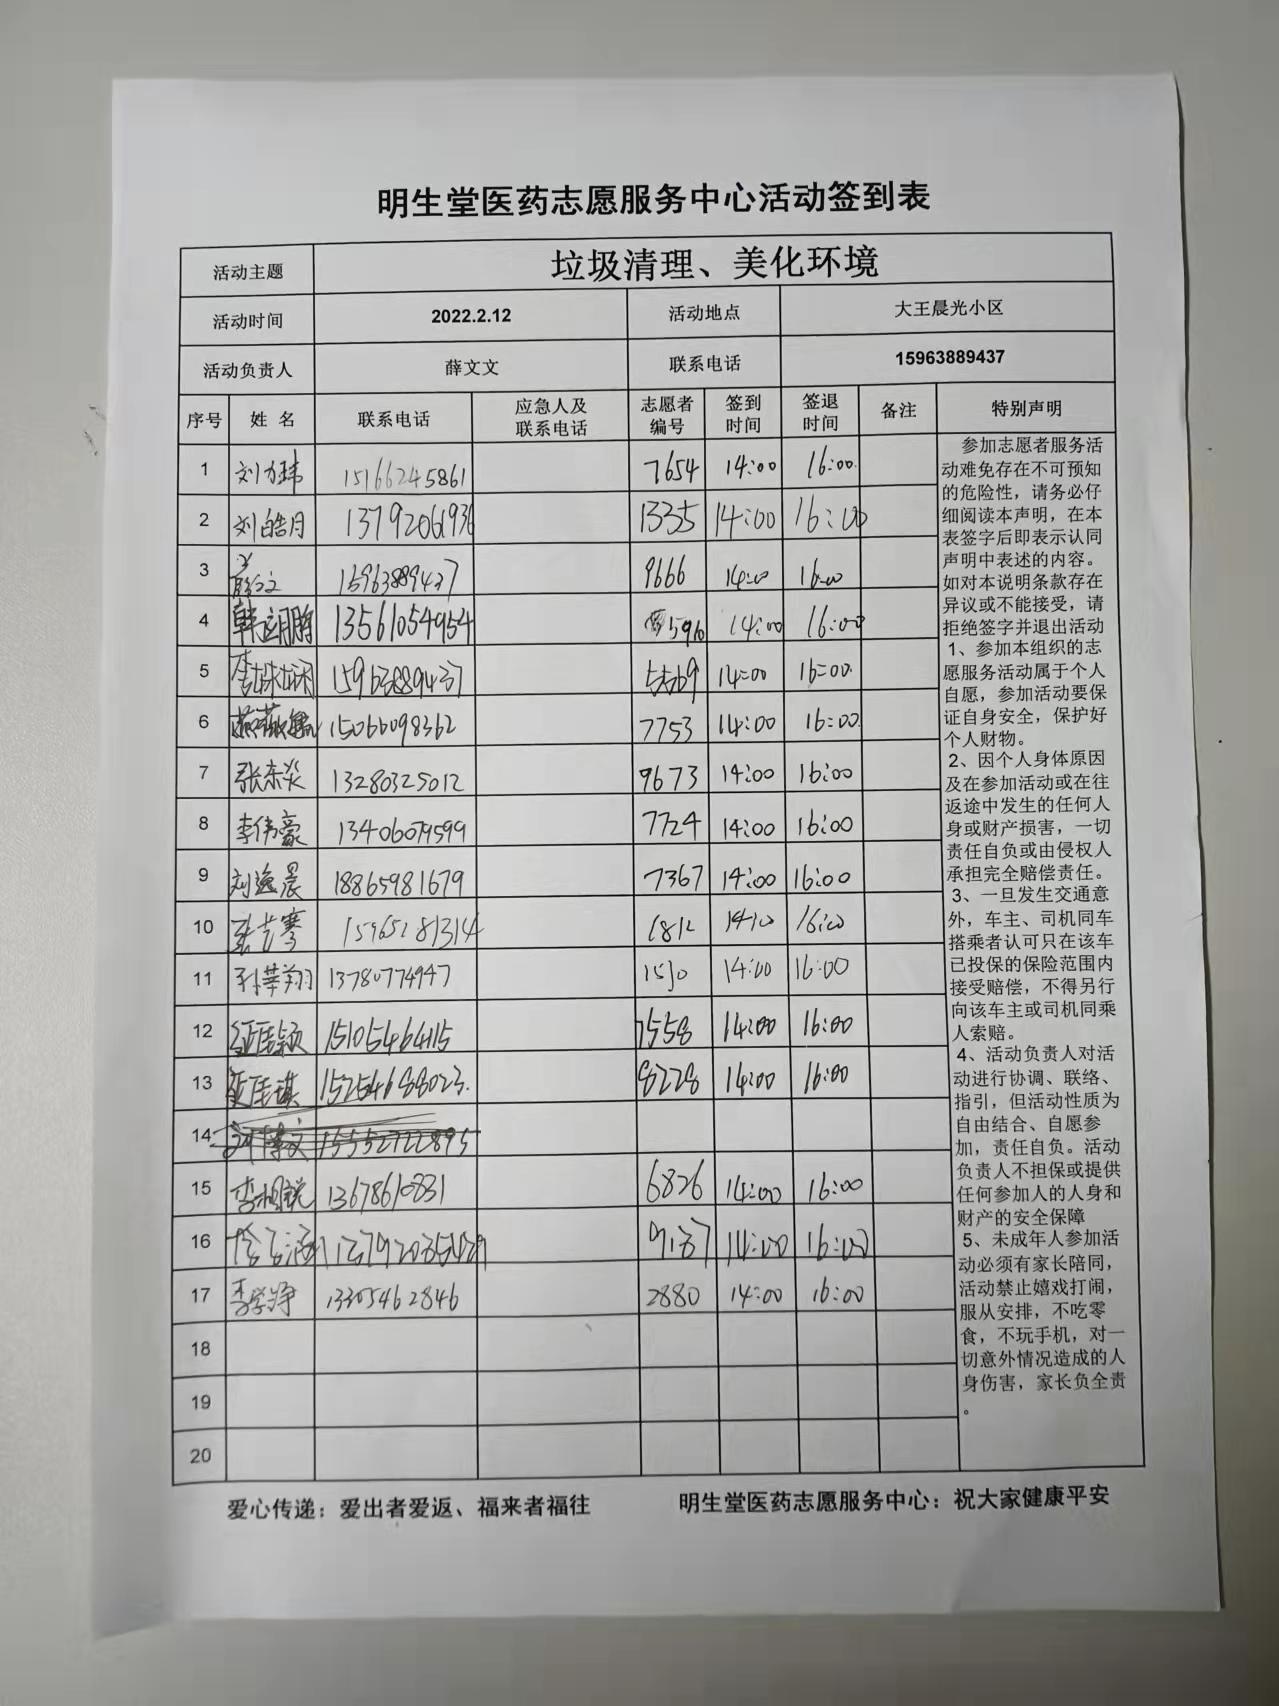 明生堂医药志愿服务中心活动签到表
活动主题 垃圾清理、美化环境
活动时间 2022.2.12 活动地点 大王晨光小区
活动负责人 薛文文 联系电话 15963889437
序号 姓名 联系电话 应急人及联系电话 志愿者编号 签到时间 签退时间 备注 特别声明
1 刘力玮 15166245861 7654 14:00 16:00
2 刘皓月 1379206193 1335 14:00 16:00
3 15963889437 9666 14:00 16:00
4 韩 鹏 13561054954 596 14:00 16:00
5 李 15963889437 5569 14:00 16:00
6 15066098362 7753 14:00 16:00
7 张东炎 13280325012 9673 14:00 16:00
8 李伟豪 13406079599 7724 14:00 16:00
9 刘逸晨 18865981679 7367 14:00 16:00
10 张艺骞 15965281314 6812 14:00 16:00
11 孙华翔 13780774947 14:00 16:00
12 15105464115 7558 14:00 16:00
13 15254688023. 8228 14:00 16:00
14 15552722895
15 李相锐 13678610831 6826 14:00 16:00
16 徐 涵 14:00 16:00
17 李学峥 13305462846 2880 14:00 16:00
18
19
20
参加志愿者服务活
动难免存在不可预知
的危险性，请务必仔
细阅读本声明，在本
表签字后即表示认同
声明中表述的内容。
如对本说明条款存在
异议或不能接受，请
拒绝签字并退出活动
1、参加本组织的志
愿服务活动属于个人
自愿，参加活动要保
证自身安全，保护好
个人财物。
2、因个人身体原因
及在参加活动或在往
返途中发生的任何人
身或财产损害，一切
责任自负或由侵权人
承担完全赔偿责任。
3、一旦发生交通意
外，车主、司机同车
搭乘者认可只在该车
已投保的保险范围内
接受赔偿，不得另行
向该车主或司机同乘
人索赔。
4、活动负责人对活
动进行协调、联络、
指引，但活动性质为
自由结合、自愿参
加，责任自负。活动
负责人不担保或提供
任何参加人的人身和
财产的安全保障
5、未成年人参加活
动必须有家长陪同，
活动禁止嬉戏打闹，
服从安排，不吃零
食，不玩手机，对一
切意外情况造成的人
身伤害，家长负全责
。
爱心传递：爱出者爱返、福来者福往 明生堂医药志愿服务中心：祝大家健康平安